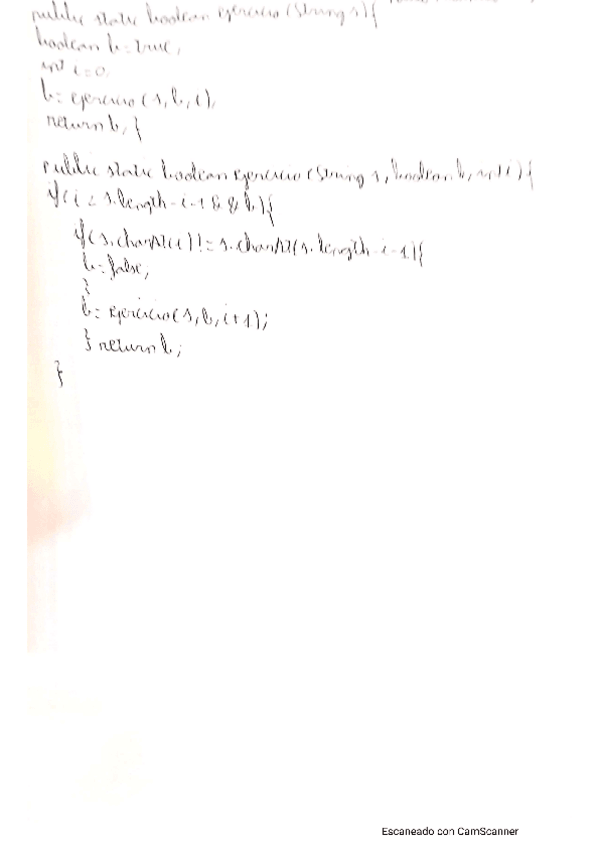 public static boolean ejercicio (String s){
boolean b = true;
int i = 0;
b = ejercicio (s, b, i);
return b; }
public static boolean ejercicio (String s, boolean b, int i) {
if (i < s.length - i - 1 && b) {
if (s.charAt(i) != s.charAt(s.length - i - 1){
b = false;
}
b = ejercicio (s, b, i+1);
} return b;
}
Escaneado con CamScanner